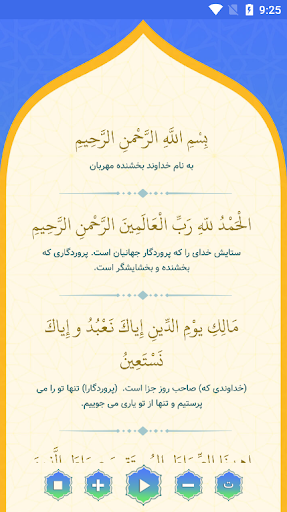 9:25
بِسْمِ اللَّهِ الرَّحْمنِ الرَّحِيمِ
به نام خداوند بخشنده مهربان
الْحَمْدُ للّهِ رَبِّ الْعَالَمِينَ الرَّحْمنِ الرَّحِيمِ
ستایش خدای را که پروردگار جهانیان است. پروردگاری که
بخشنده و بخشایشگر است.
مَالِكِ يَوْمِ الدِّينِ إِيَّاكَ نَعْبُدُ و إِيَّاكَ
نَسْتَعِينُ
(خداوندی که) صاحب روز جزا است. (پروردگارا) تنها تو را می
پرستیم و تنها از تو یاری می جوییم.
ت